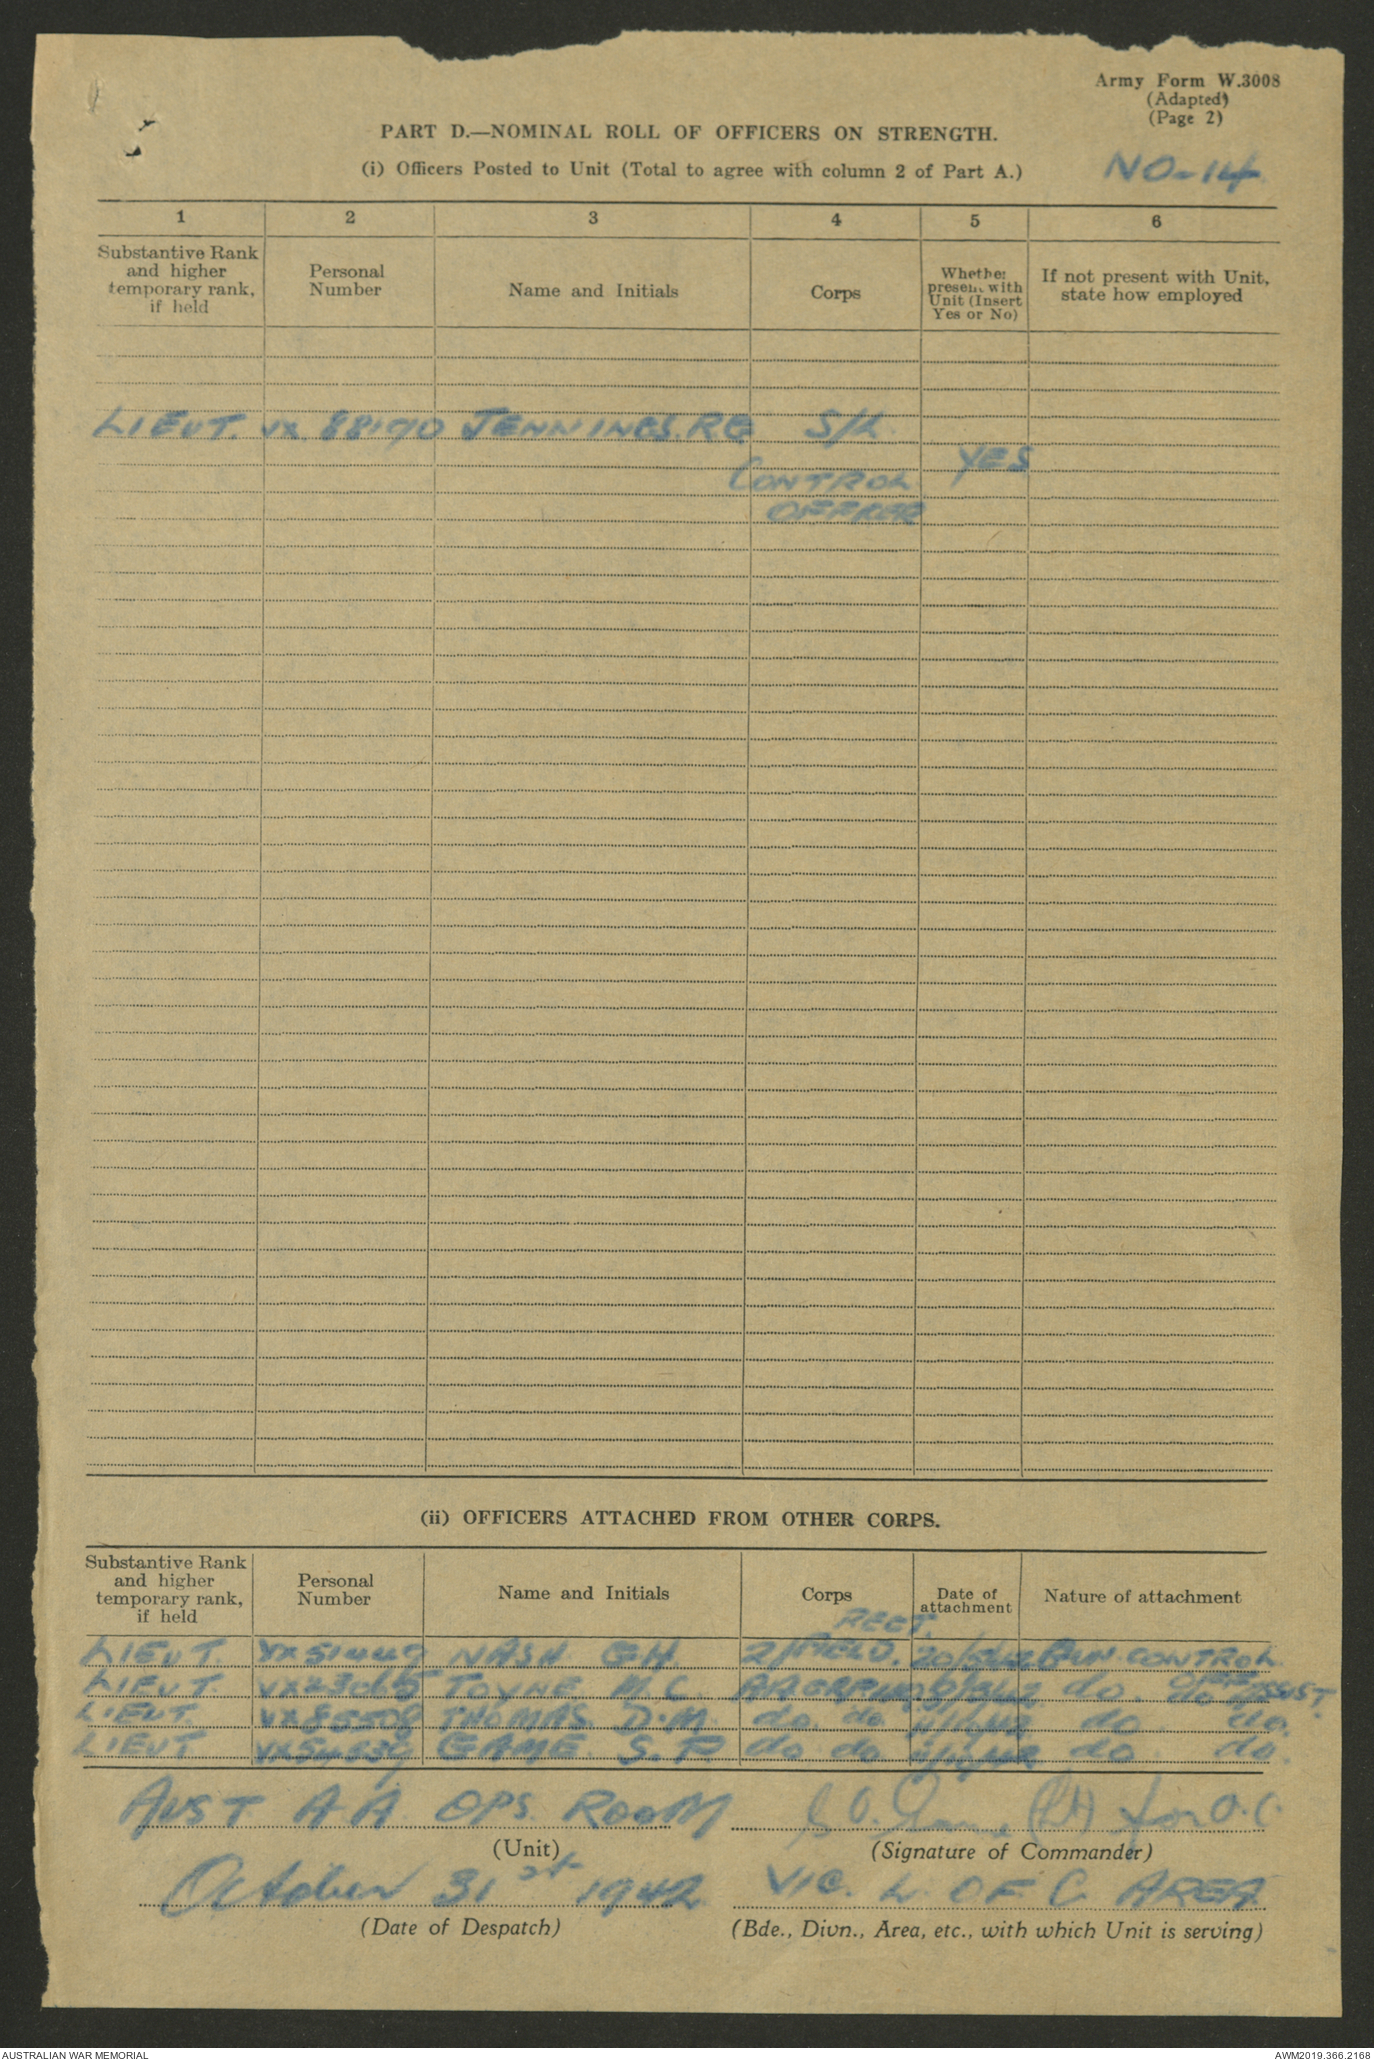 Army Form W.3008
(Adapted)
(Page 2)
PART D.—NOMINAL ROLL OF OFFICERS ON STRENGTH.
(i) Officers Posted to Unit (Total to agree with column 2 of Part A.)
NO-14
1 2 3 4 5 6
Substantive Rank and higher temporary rank, if held
Personal Number
Name and Initials
Corps
Whether present with Unit (Insert Yes or No)
If not present with Unit, state how employed
LIEUT. VX 88170 JENNINGS. R.G S/L
CONTROL YES
OFFICER
(ii) OFFICERS ATTACHED FROM OTHER CORPS.
Substantive Rank and higher temporary rank, if held
Personal Number
Name and Initials
Corps
Date of attachment
Nature of attachment
REGT.
LIEUT. NASH G.H. 2/ FIELD. GUN CONTROL
LIEUT. TOYNE M.C. do. ASSIST.
LIEUT. THOMAS. D.M. do. do. do. do.
LIEUT GAME. S.P. do do do. do.
AUST A A OPS. ROOM for O.C.
(Unit)
(Signature of Commander)
October 31st 1942 VIC. L. OF C. AREA
(Date of Despatch)
(Bde., Divn., Area, etc., with which Unit is serving)
AUSTRALIAN WAR MEMORIAL
AWM2019.366.2168